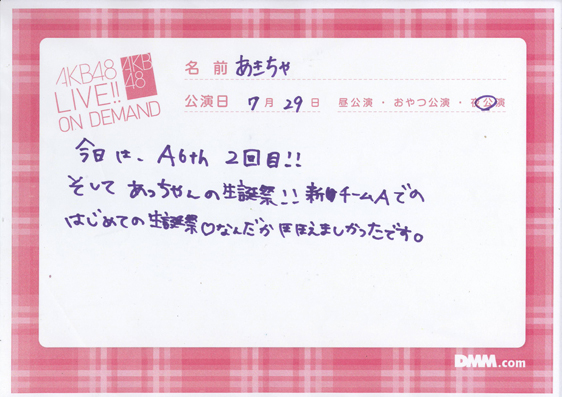 AKB48
LIVE!!
ON DEMAND
AKB
48
名前 あきちゃ
公演日 7月29日 昼公演・おやつ公演・夜公演
今日は、A6th 2回目!!
そして あっちゃんの生誕祭!! 新チームAでの
はじめての生誕祭♡なんだか ほほえましかったです。
DMM.com